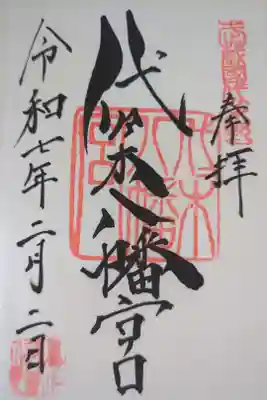 奉拝
代々木八幡宮
令和七年二月二日